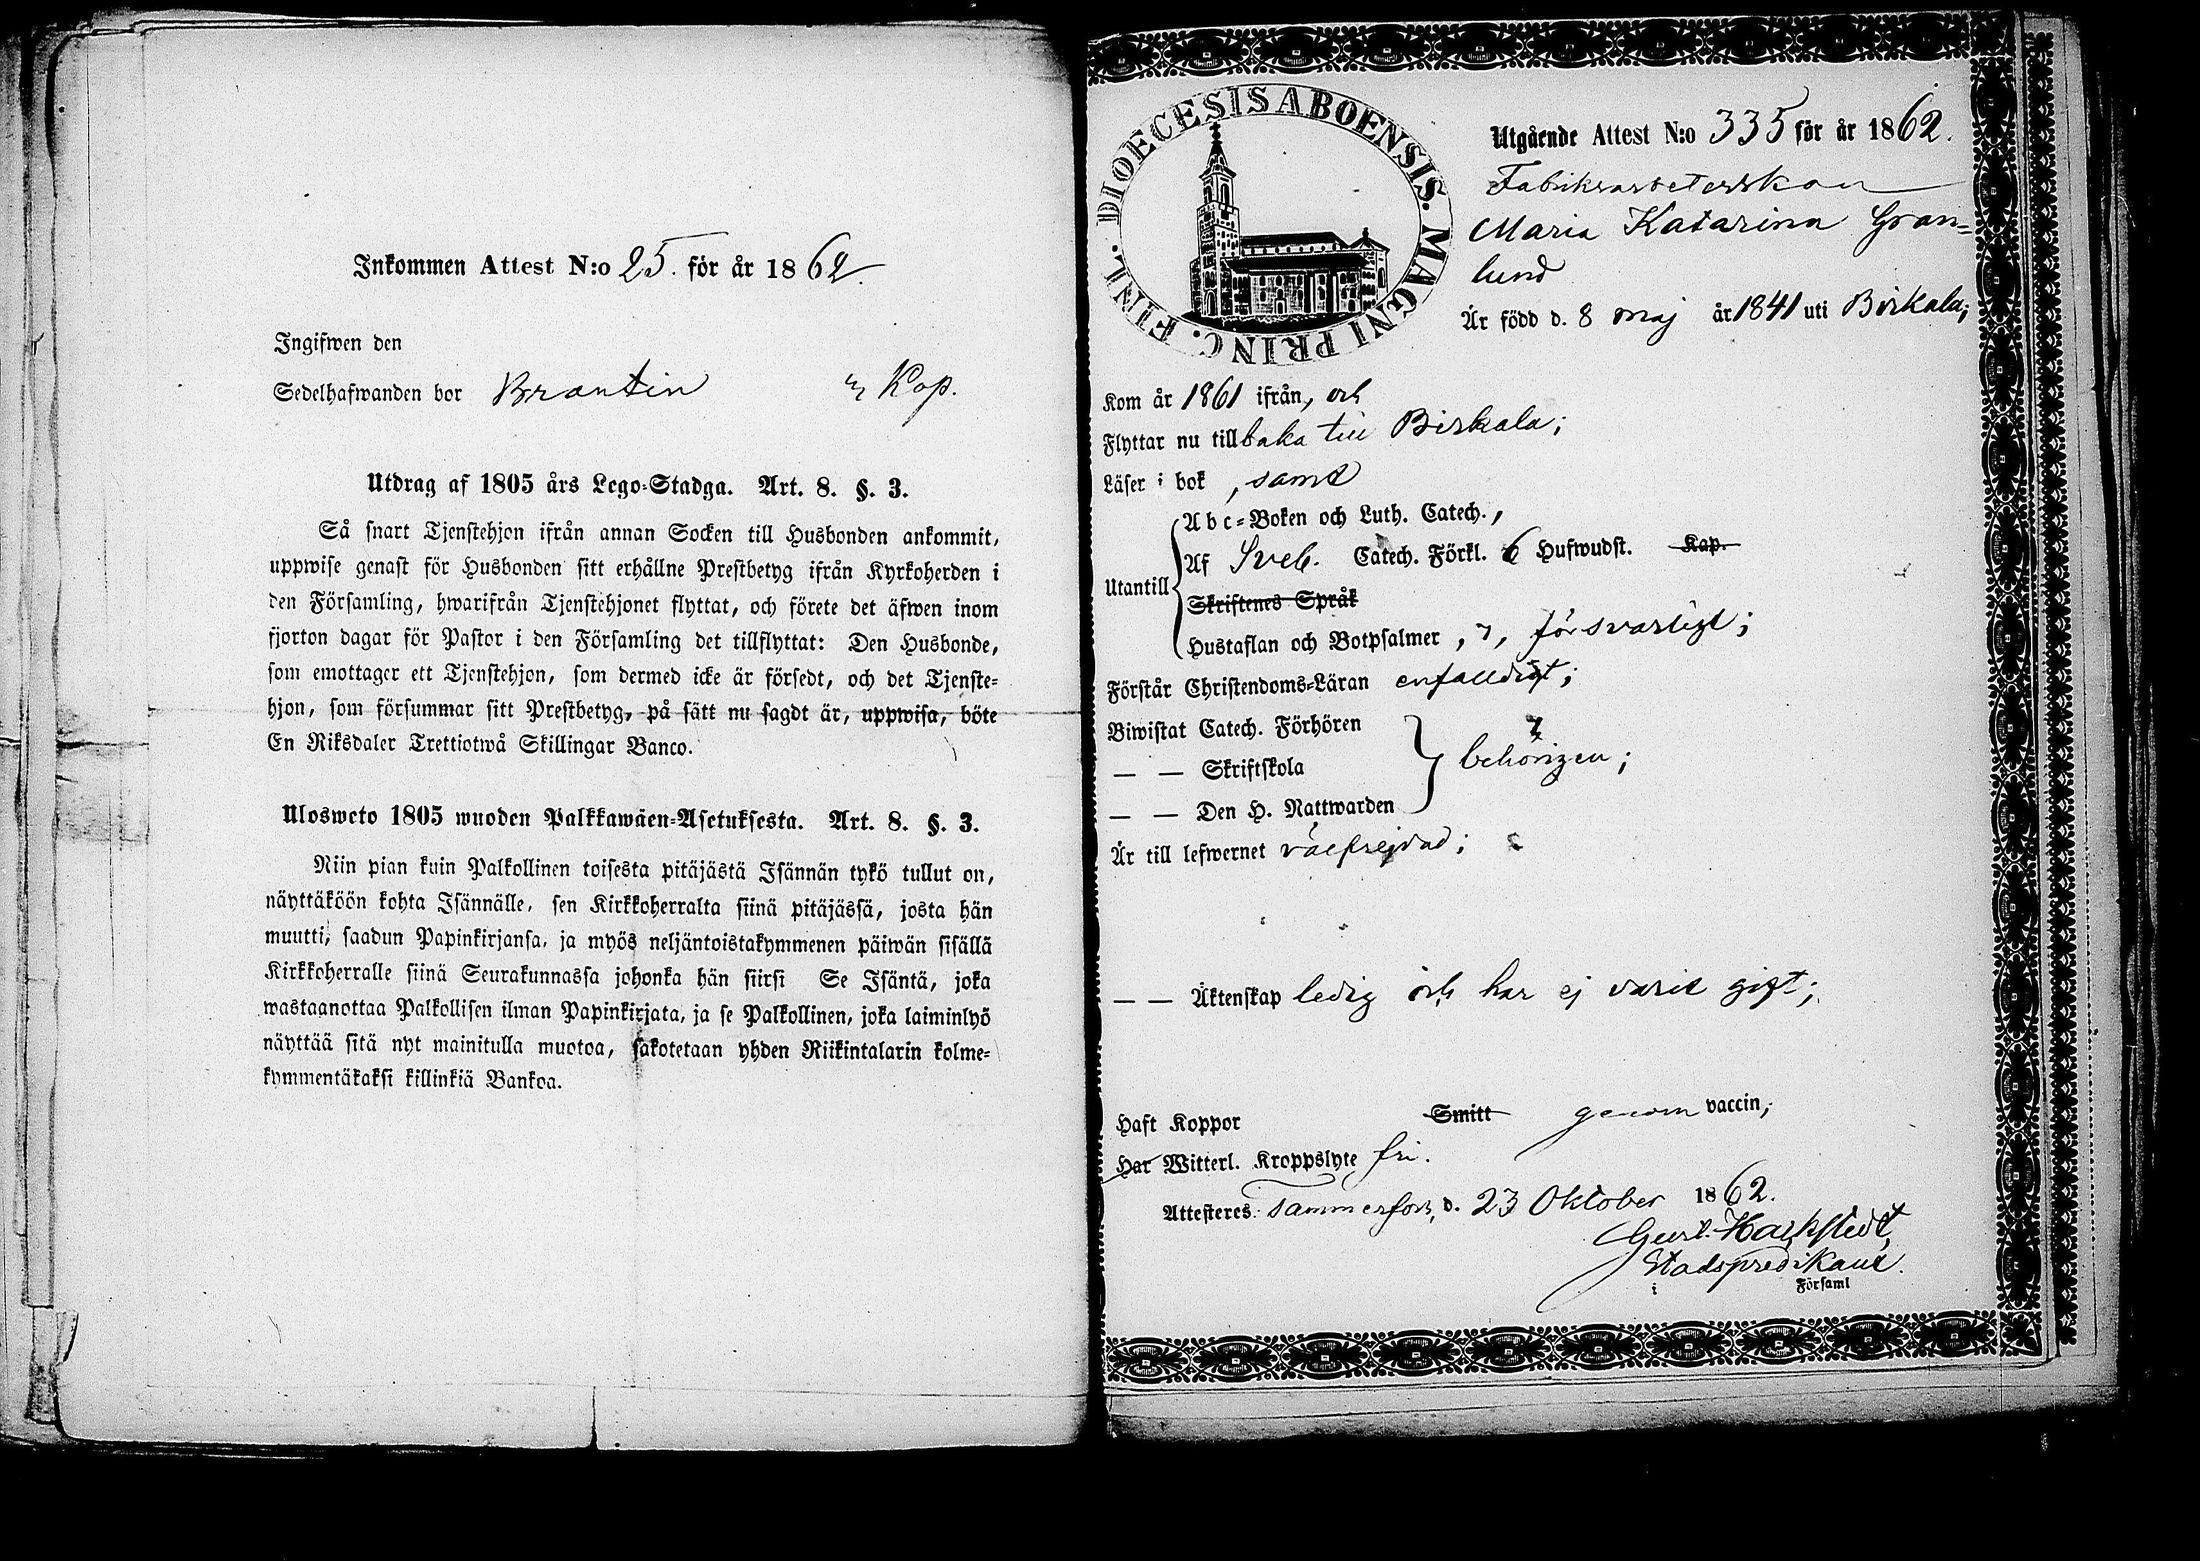 Inkommen Attest N:o 25. för år 1862.
Ingifwen den
Sedelhafwanden bor Brantin Kop.
Utdrag af 1805 års Lego-Stadga. Art. 8. §. 3.
Så snart Tjenstehjon ifrån annan Socken till Husbonden ankommit,
uppwise genast för Husbonden sitt erhållne Prestbetyg ifrån Kyrkoherden i
den Församling, hwarifrån Tjenstehjonet flyttat, och förete det äfwen inom
fjorton dagar för Pastor i den Församling det tillflyttat: Den Husbonde,
som emottager ett Tjenstehjon, som dermed icke är försedt, och det Tjenste-
hjon, som försummar sitt Prestbetyg, på sätt nu sagdt är, uppwisa, böte
En Riksdaler Trettiotwå Skillingar Banco.
Ulosweto 1805 wuoden Palkkawäen-Asetuksesta. Art. 8. §. 3.
Niin pian kuin Palkollinen toisesta pitäjästä Isännän tykö tullut on,
näyttäköön kohta Isännälle, sen Kirkkoherralta siinä pitäjässä, josta hän
muutti, saadun Papinkirjansa, ja myös neljäntoistakymmenen päiwän sisällä
Kirkkoherralle siinä Seurakunnassa johonka hän siirsi Se Isäntä, joka
wastaanottaa Palkollisen ilman Papinkirjata, ja se Palkollinen, joka laiminlyö
näyttää sitä nyt mainitulla muotoa, sakotetaan yhden Riikintalarin kolme-
kymmentäkaksi killinkiä Bankoa.
DIOECESIS ABOENSIS. MAGNI PRINC. FINL.
Utgående Attest N:o 335 för år 1862.
Fabriksarbeterskan
Maria Katarina Gran=
lund
Är född d. 8 maj år 1841 uti Birkala;
Kom år 1861 ifrån, och
Flyttar nu tillbaka till Birkala;
Läser i bok , samt
Abc=Boken och Luth. Catech.,
Af Sveb. Catech. Förkl. 6 Hufwudst. Kap.
Utantill
Skriftenes Språk
Hustaflan och Botpsalmer , 7, försvarligt;
Förstår Christendoms-Läran enfalldigt;
Biwistat Catech. Förhören
— — Skriftskola behörigen;
— — Den H. Nattwarden
Är till lefwernet välfrejdad;
— — Äktenskap ledig och har ej varit gift;
Haft Koppor Smitt genom vaccin;
Har Witterl. Kroppslyte fri.
Attesteres. Tammerfors, d. 23 Oktober 1862.
Gust. Hackstedt,
Stadspredikant.
i Församl